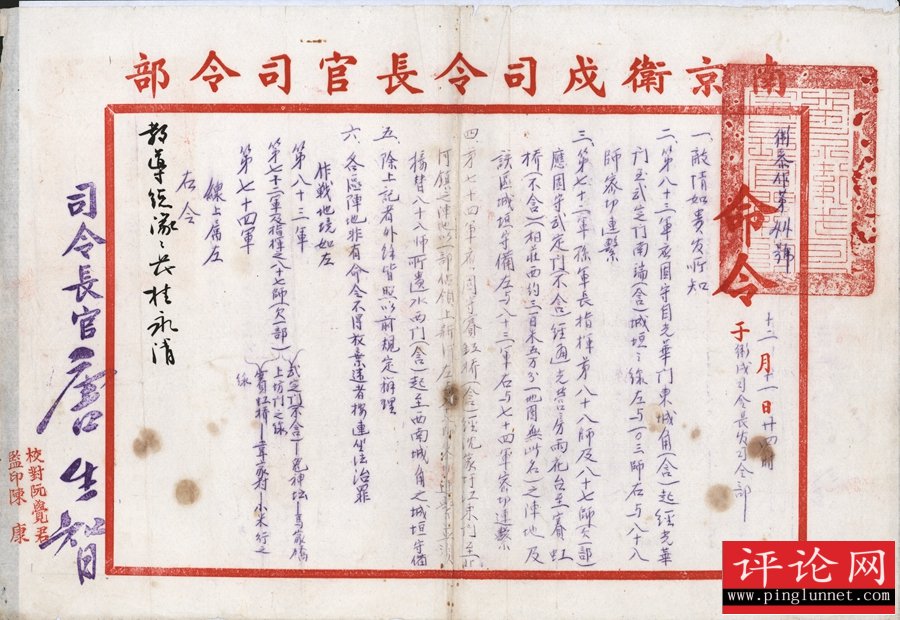 南京衛戍司令長官司令部
命令
十二月十一日廿四時
于衛戍司令長官司令部
一、敵情如貴官所知
二、第八十三軍應固守自光華門東城角(含)起經光華
門至武定門南端(含)城垣之線左與一〇三師右與八十八
師密切連繫
三、第七十二軍孫軍長指揮第八十八師及八十七師(欠一部)
應固守武定門(不含)經通光營房雨花台至賽虹
橋(不含)(相莊西約三百米五万分一地圖無此名)之陣地及
該區城垣守備左與八十三軍右與七十四軍密切連繫
四、第七十四軍應固守賽虹橋(含)經沈家圩江東門至
河鎮之陣地以一部佔領上新河左
接替八十八師所遺水西門(含)起至西南城角之城垣守備
五、除上記者外餘皆照以前規定辦理
六、各懸陣地非有命令不得放棄違者按連坐法治罪
作戰地境如左
第八十三軍
第七十二軍及指揮之八十七師(欠一部)
第七十四軍
武定門(不含)—鬼神坛—高家橋
上坊門之線
賽虹橋—尹家村—小米行之
線
線上屬左
右令
教導總隊總隊長桂永清
司令長官唐生智
校對阮覺君
監印陳康
评论网
www.pinglunnet.com